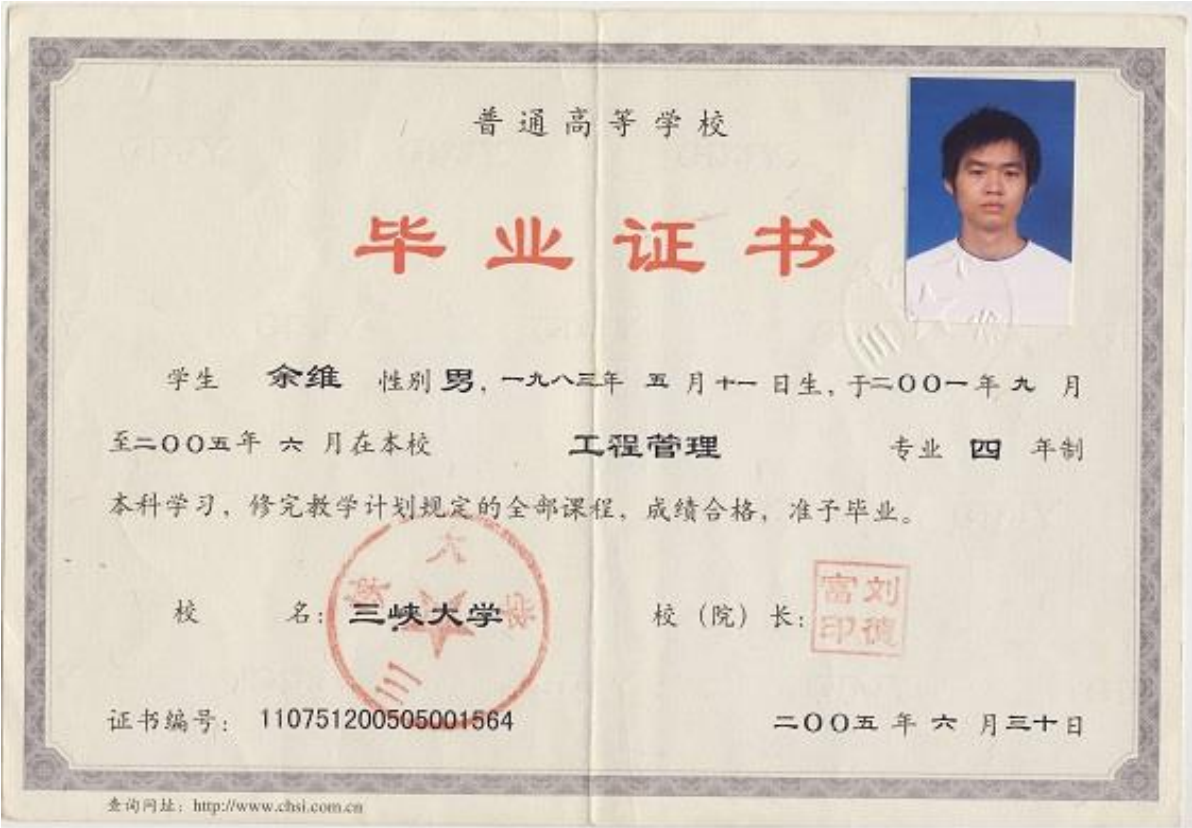 普通高等学校
毕业证书
学生 余维 性别 男，一九八三年 五 月 十一 日生，于二〇〇一年 九 月
至二〇〇五年 六 月在本校 工程管理 专业 四 年制
本科学习，修完教学计划规定的全部课程，成绩合格，准予毕业。
校 名：三峡大学
三峡大学
校（院）长：
刘德富印
证书编号：110751200505001564
二〇〇五 年 六 月三十日
查询网址：http://www.chsi.com.cn